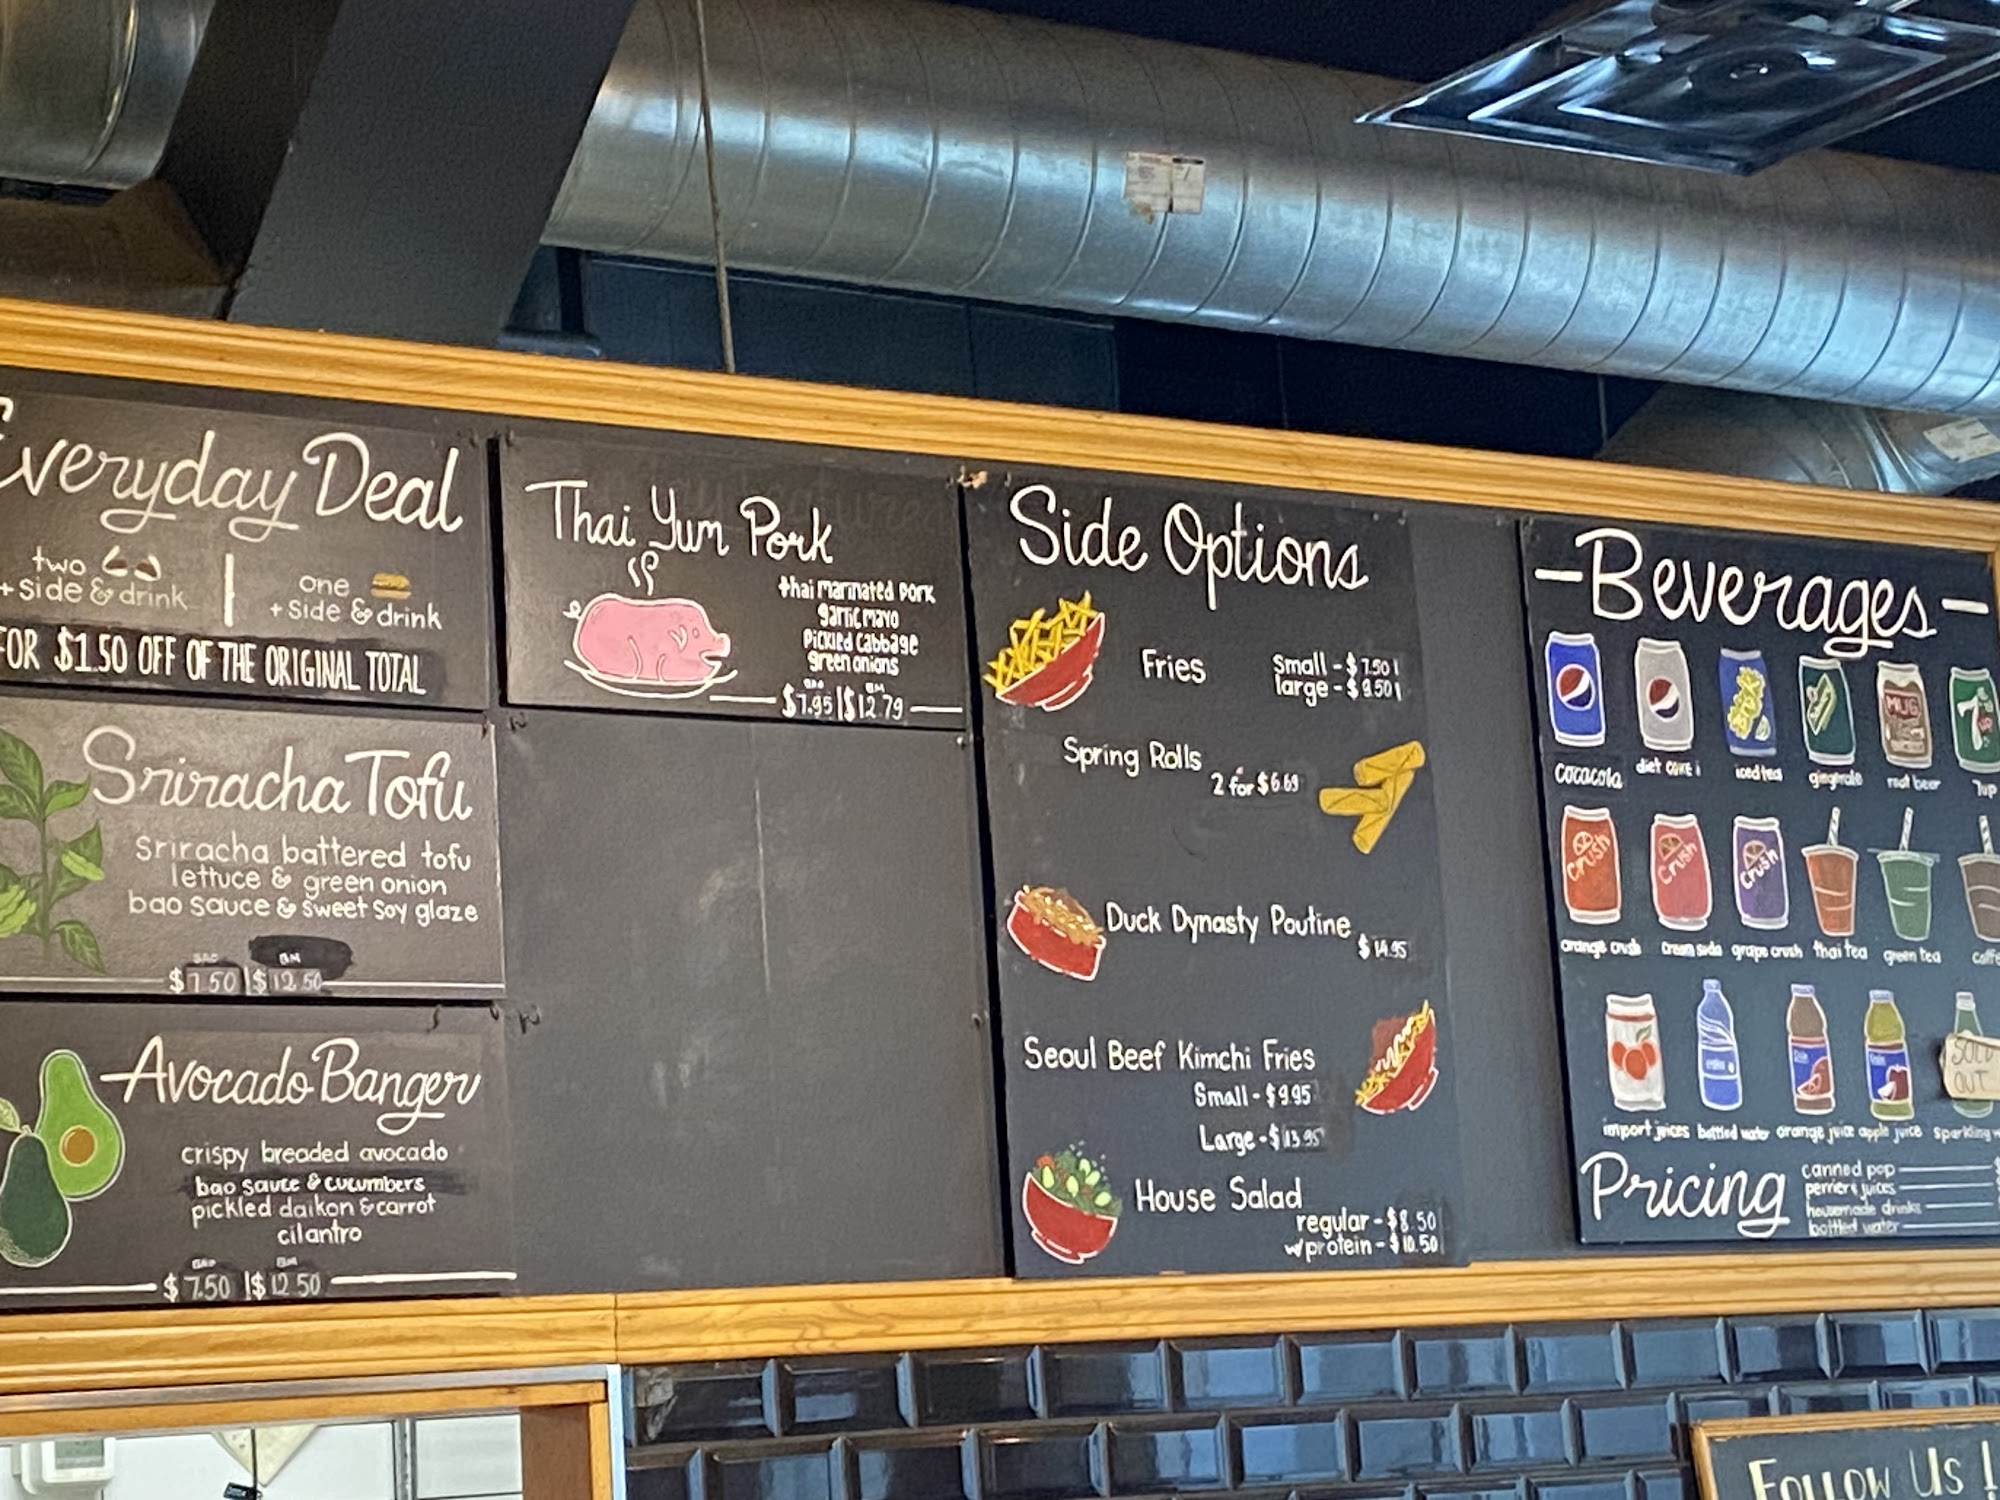 Everyday Deal
two
+ side & drink
one
+ side & drink
FOR $1.50 OFF OF THE ORIGINAL TOTAL
Sriracha Tofu
Sriracha battered tofu
lettuce & green onion
bao sauce & sweet soy glaze
BAO BM
$7.50 | $12.50
Avocado Banger
crispy breaded avocado
bao sauce & cucumbers
pickled daikon & carrot
cilantro
BAO BM
$7.50 | $12.50
Thai Yum Pork
thai marinated pork
garlic mayo
pickled cabbage
green onions
BAO BM
$7.95 | $12.79
Side Options
Fries
Small - $7.50
large - $9.50
Spring Rolls
2 for $6.69
Duck Dynasty Poutine
$14.95
Seoul Beef Kimchi Fries
Small - $9.95
Large - $13.95
House Salad
regular - $8.50
w/protein - $10.50
- Beverages -
MUG
7up
cocacola diet coke iced tea gingerale root beer 7up
Crush Crush Crush
orange crush cream soda grape crush thai tea green tea coffe
SOLD
OUT
import juices bottled water orange juice apple juice sparkling w
Pricing
canned pop
perrier & juices
housemade drinks
bottled water
FOLLOW US !